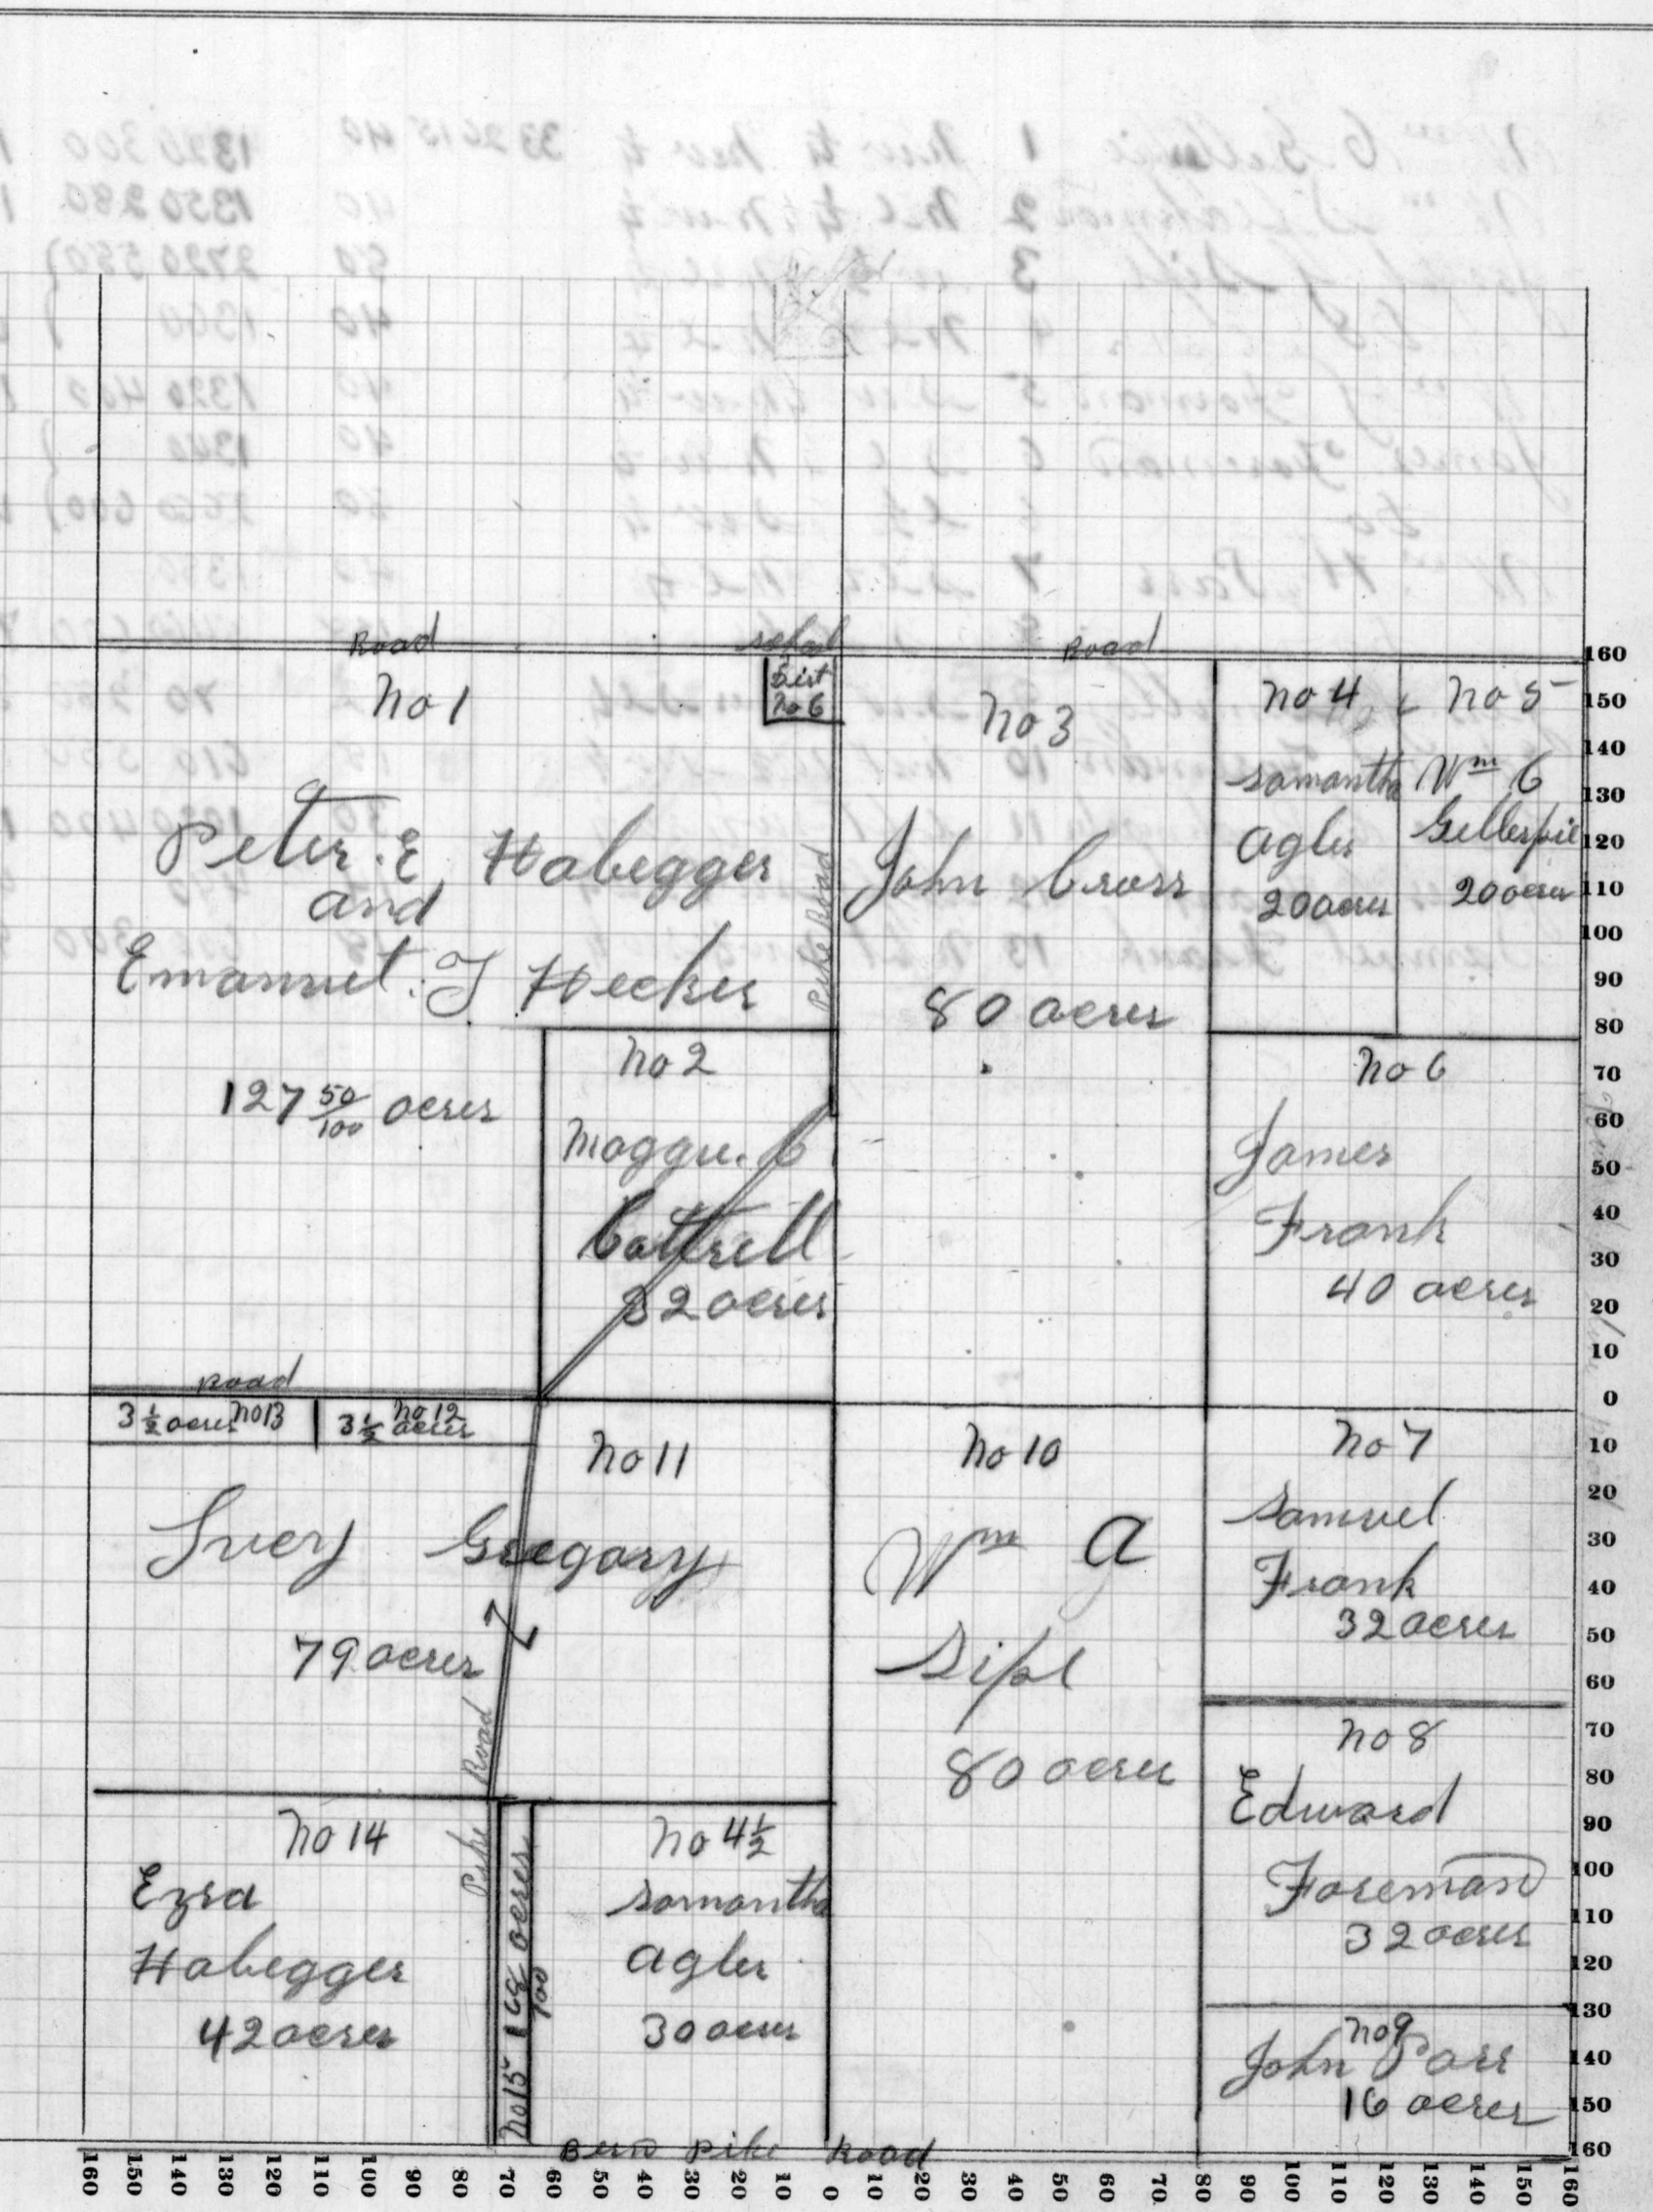 Road
school
Road
No 1
Dist
No 6
No 3
No 4
No 5
Peter. E. Habegger
and
Emanuel. J Hecker
127 50/100 acres
Pike Road
John Cross
80 acres
Samantha
Agler
20 acres
Wm C
Gillespie
20 acres
No 2
Maggie. C
Cottrell
32 acres
No 6
James
Frank
40 acres
Road
3 1/2 acres No 13
No 12
3 1/2 acres
No 11
Gregory
79 acres
Pike Road
No 10
Wm A
Sipe
80 acres
No 7
Samuel
Frank
32 acres
No 8
Edward
Foreman
32 acres
No 14
Ezra
Habegger
42 acres
Pike Road
No 15 1 68/100 acres
No 4 1/2
Samantha
Agler
30 acres
No 9
John Parr
16 acres
Bern Pike Road
160
150
140
130
120
110
100
90
80
70
60
50
40
30
20
10
0
10
20
30
40
50
60
70
80
90
100
110
120
130
140
150
160
160 150 140 130 120 110 100 90 80 70 60 50 40 30 20 10 0 10 20 30 40 50 60 70 80 90 100 110 120 130 140 150 160